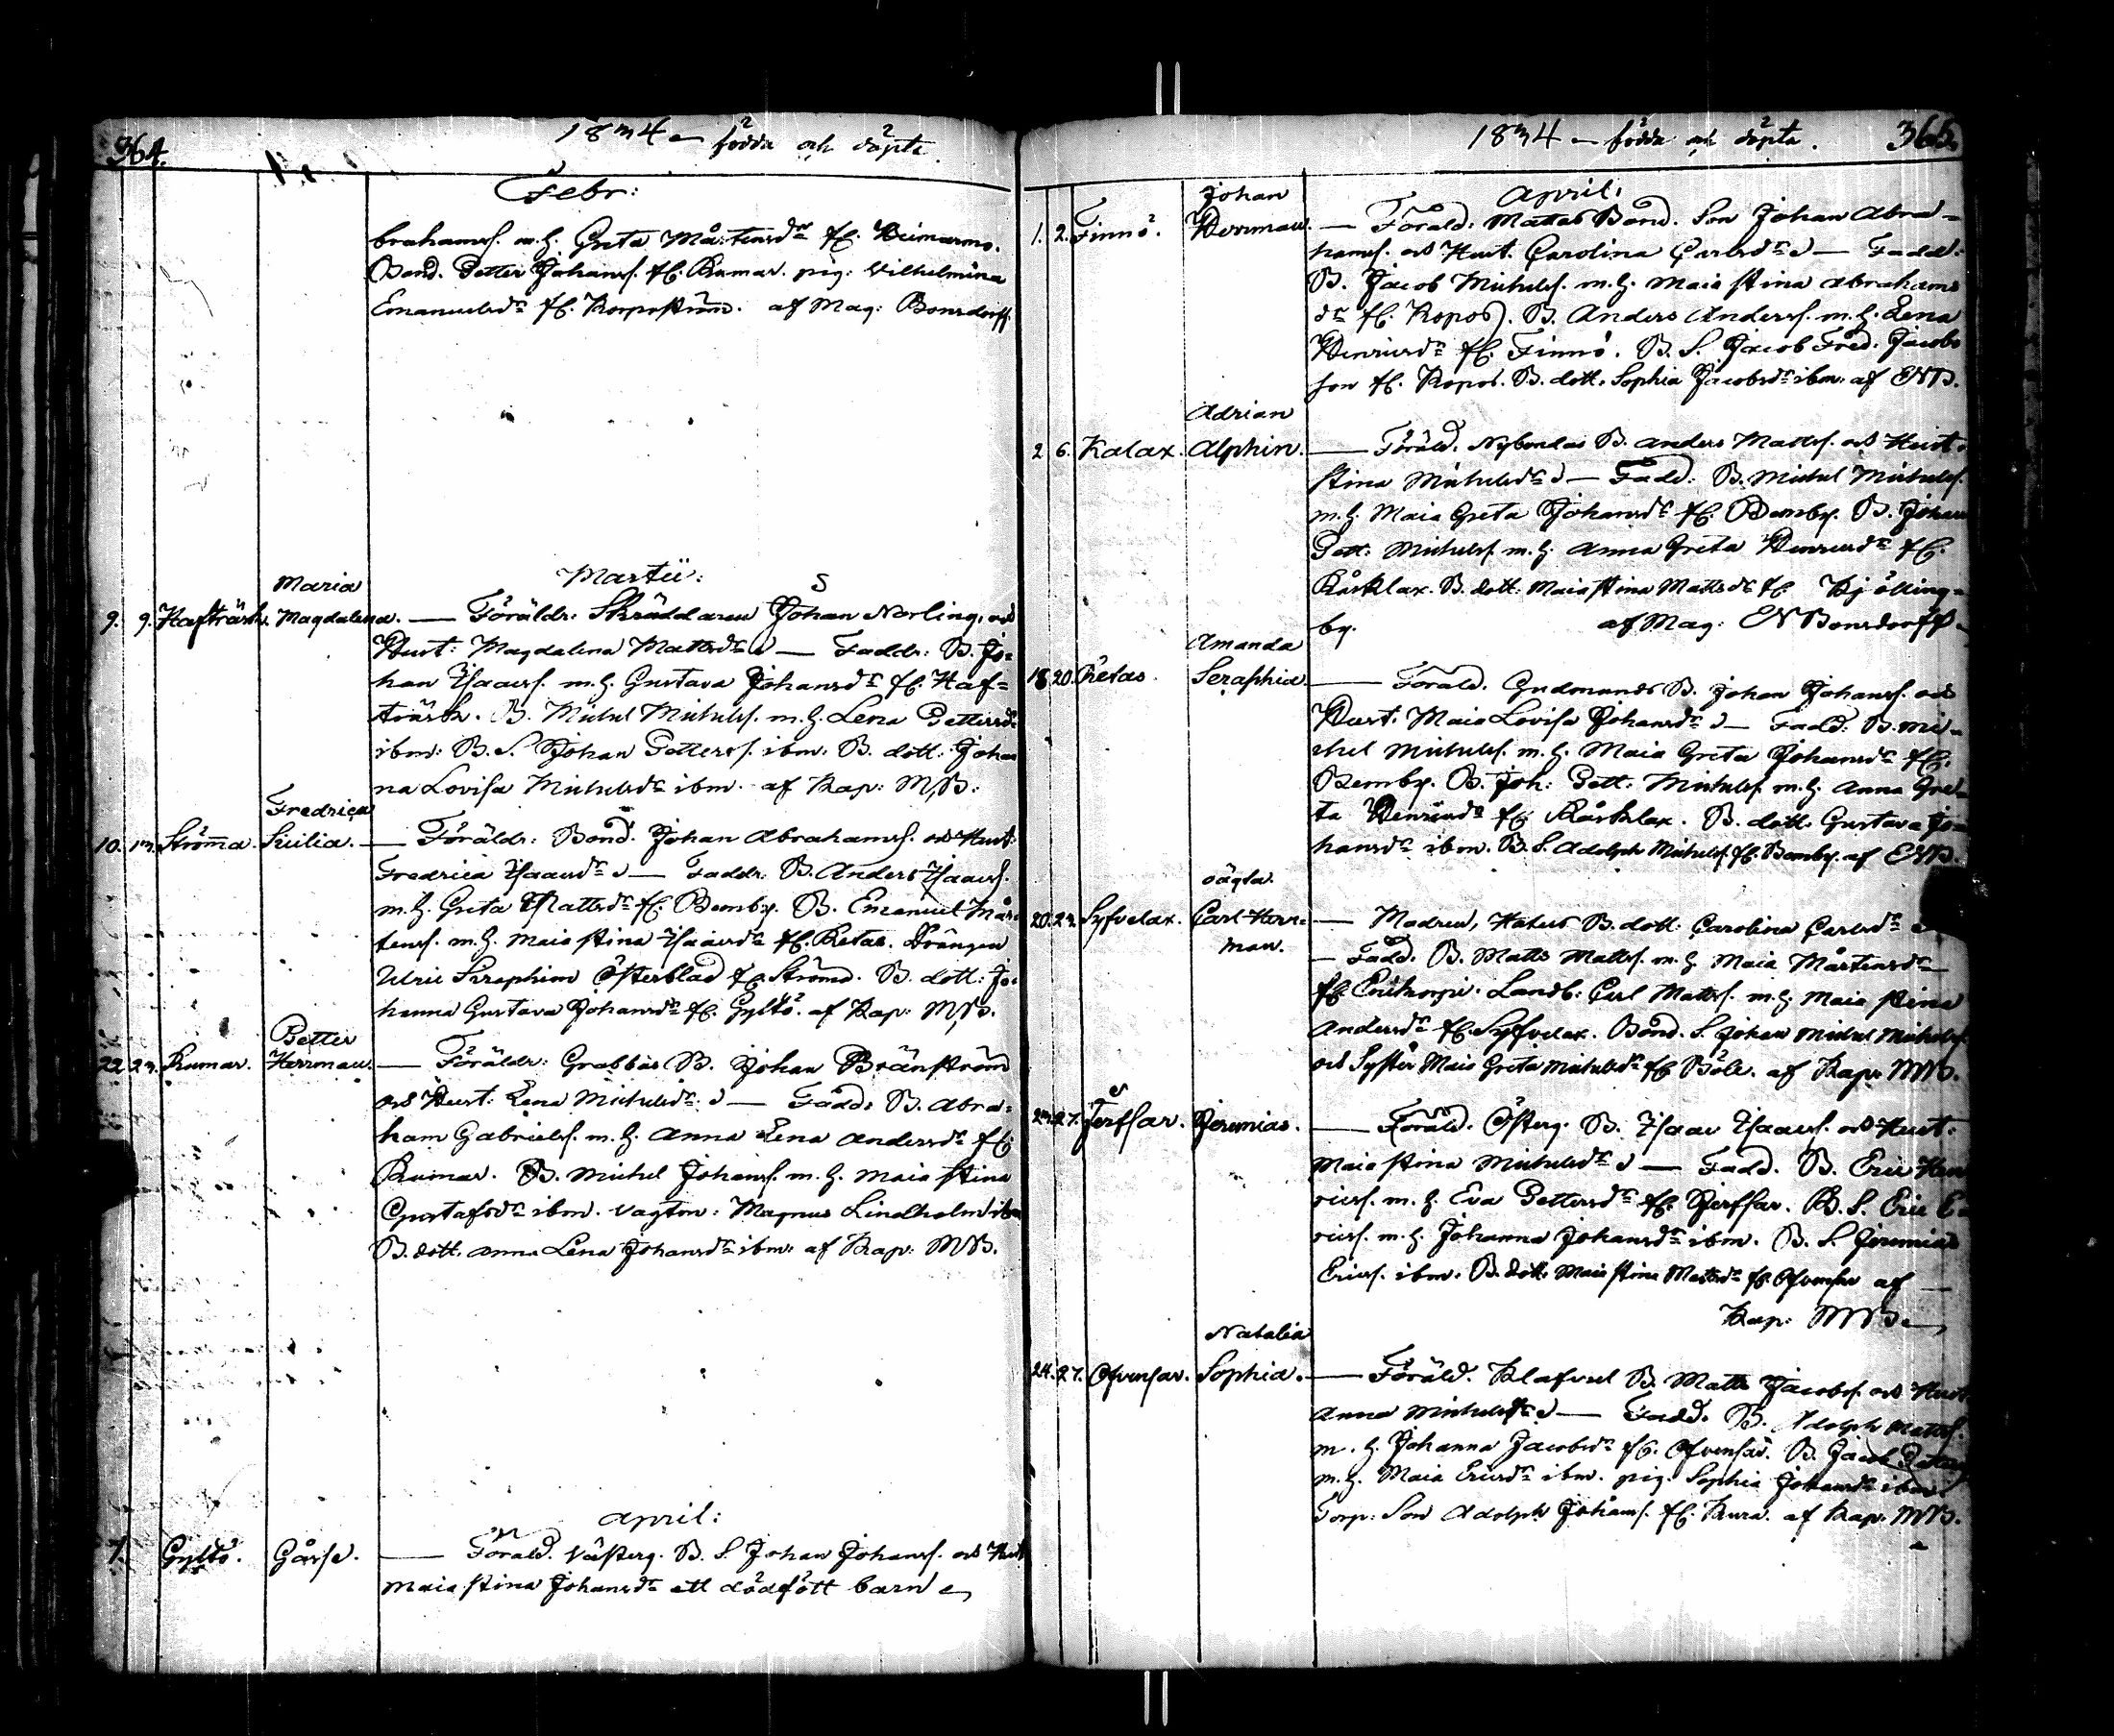 364.
1834 — födda och döpta
Febr:
brahamss. m. h. Greta Mårtensdr fr.
Bond. Petter Johanss. fr. Rumar. pig: Vilhelmina
Emanuelsdr fr. Korpoström. af Mag: Bonsdorff.
Martii:
Maria
9. 9. Hafträsk. Magdalena. — Föräldr: Skräddaren Johan Norling, och
Hust: Magdalena Mattsdr — Faddr: B. Jo=
han Isaacss. m. h. Gustava Johansdr fr. Haf=
träsk. B. Michel Michelss. m. h. Lena Pettersdr
ibm: B. S. Johan Petterss. ibm: B. dott: Johan
na Lovisa Michelsdr ibm. af Kap: MB.
Fredrica
10. 13. Strömma. Cicilia. — Föräldr: Bond. Johan Abrahamss. och Hust:
Fredrica Isaacsdr — Faddr: B. Anders Isaacss.
m. h. Greta Mattsdr fr. Bemby. B. Emanuel Mår=
tenss. m. h. Maia Stina Isaacsdr fr. Retas. Drängen
Ulric Seraphim Österblad fr. Strömma. B. dott: Jo=
hanna Gustava Johansdr fr. Gyltö. af Kap: MB.
Petter
22. 23. Rumar. Herrman. — Föräldr: Grabbas B. Johan Bränström
och Hust: Lena Michelsdr — Fadd: B. Abra=
ham Gabrielss. m. h. Anna Lena Andersdr fr.
Rumar. B. Michel Johanss. m. h. Maia Stina
Gustafsdr ibm. Vagtm: Magnus Lindholm ibm
B. dott. Anna Lena Johansdr ibm: af Kap: MB.
April:
7. Gyltö. Gåsse. — Föräld. Västerg. B. S. Johan Johanss. och Hust
Maia Stina Johansdr ett dödfött barn
1834 — födda och döpta.
365.
April.
Johan
1. 2. Finnö. Herrman. — Föräld: Mattas Bond. Son Johan Abra=
hamss. och Hust. Carolina Carlsdr — Fadd:
B. Jacob Michelss. m. h. Maia Stina Abrahams
dr fr. Kopos. B. Anders Anderss. m. h. Lena
Henricsdr fr. Finnö. B. S. Jacob Fred. Jacobs
son fr. Kopos. B. dott. Sophia Jacobsdr ibm: af ENB.
Adrian
2 6. Kalax. Alphin. — Föräld. Nybondas B. Anders Matss. och Hust.
Stina Michelsdr — Fadd: B. Michel Michelss.
m. h. Maia Greta Johansdr fr. Bemby. B. Johan
Pett: Michelss. m. h. Anna Greta Henricsdr fr.
Råsklax. B. dott: Maia Stina Mattsdr fr. Kjölling=
by. af Mag: EN Bonsdorff
Amanda
18 20. Retas. Seraphia. — Föräld. Gudmunds B. Johan Johanss. och
Hust. Maia Lovisa Johansdr — Fadd: B. Mi=
chel Michelss. m. h. Maia Greta Johansdr fr.
Bemby. B. Joh: Pett: Michelss. m. h. Anna Gre=
ta Henricsdr fr. Råsklax. B. dott. Gustava Jo=
hansdr ibm. B. S. Adolph Michelss. fr. Bemby. af ENB.
oägta.
20. 23. Syfvelax. Carl Herr=
man. — Modren, B. dott: Carolina Carlsdr
— Fadd. B. Matts Mattss. m. h. Maia Mårtensdr
fr. Landb: Carl Mattss. m. h. Maia Stina
Andersdr fr. Syfvelax. Bond. S. Johan Michel Michelss.
och Syster Maia Greta Michelsdr fr. Böle. af Kap: MB.
23. 27. Jerfsar. Jeremias. — Föräld. Österg. B. Isaac Isaacss. och Hust.
Maia Stina Michelsdr — Fadd. B. Eric Hen
ricss. m. h. Eva Pettersdr fr. Jerfsar. B. S. Eric E=
ricss. m. h. Johanna Johansdr ibm. B. S. Jeremias
Ericss. ibm. B. dott. Maia Stina Mattsdr fr. Ofvensar af
Kap: MB
Natalia
24. 27. Ofvensar. Sophia. — Föräld. Klafvul B. Matts Jacobss. och Hust
Anna Michelsdr — Fadd. B. Adolph Mattss.
m. h. Johanna Jacobsdr fr. Ofvensar. B. Jacob
m. h. Maia Ericsdr ibm. pig. Sophia Johansdr ibm.
Torp: Son Adolph Johanss. fr. af Kap: MB.